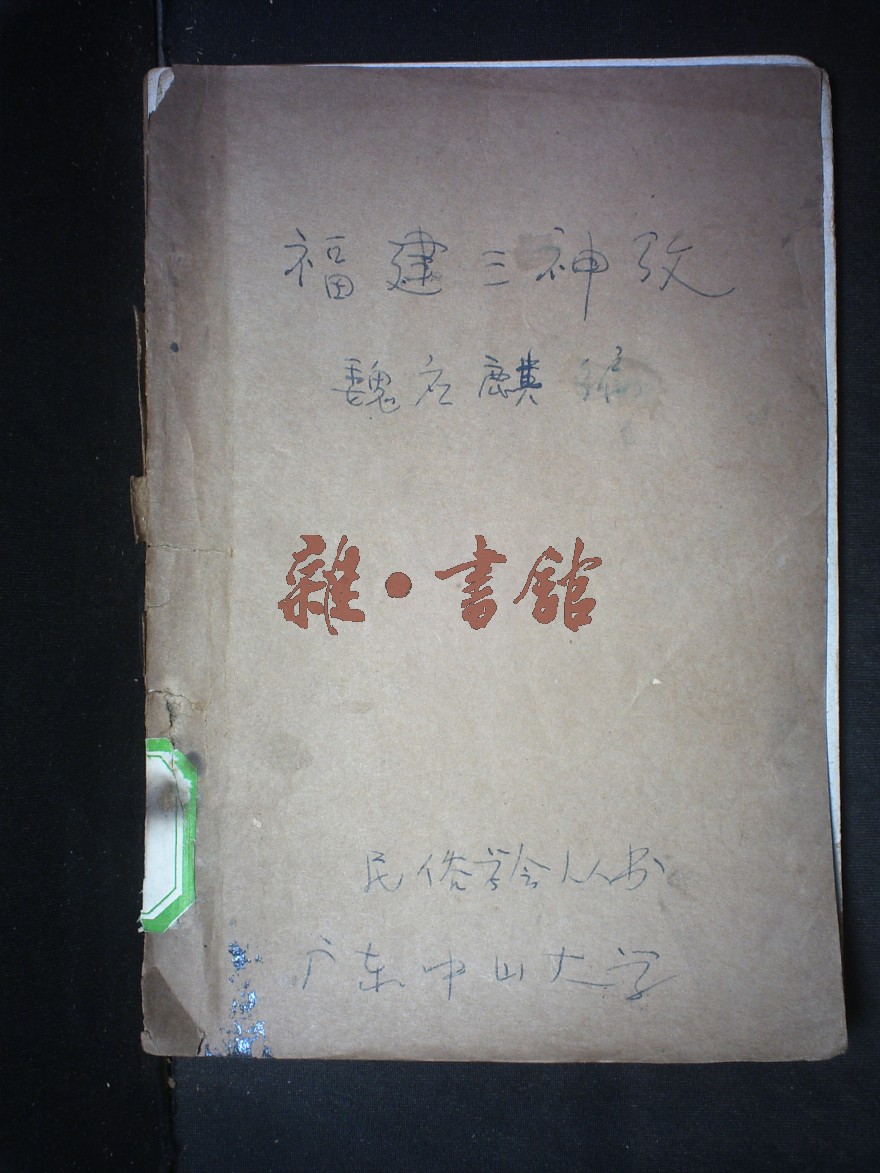 福建三神攷
魏应麒 编
雜·書館
民俗学会丛书
广东中山大学